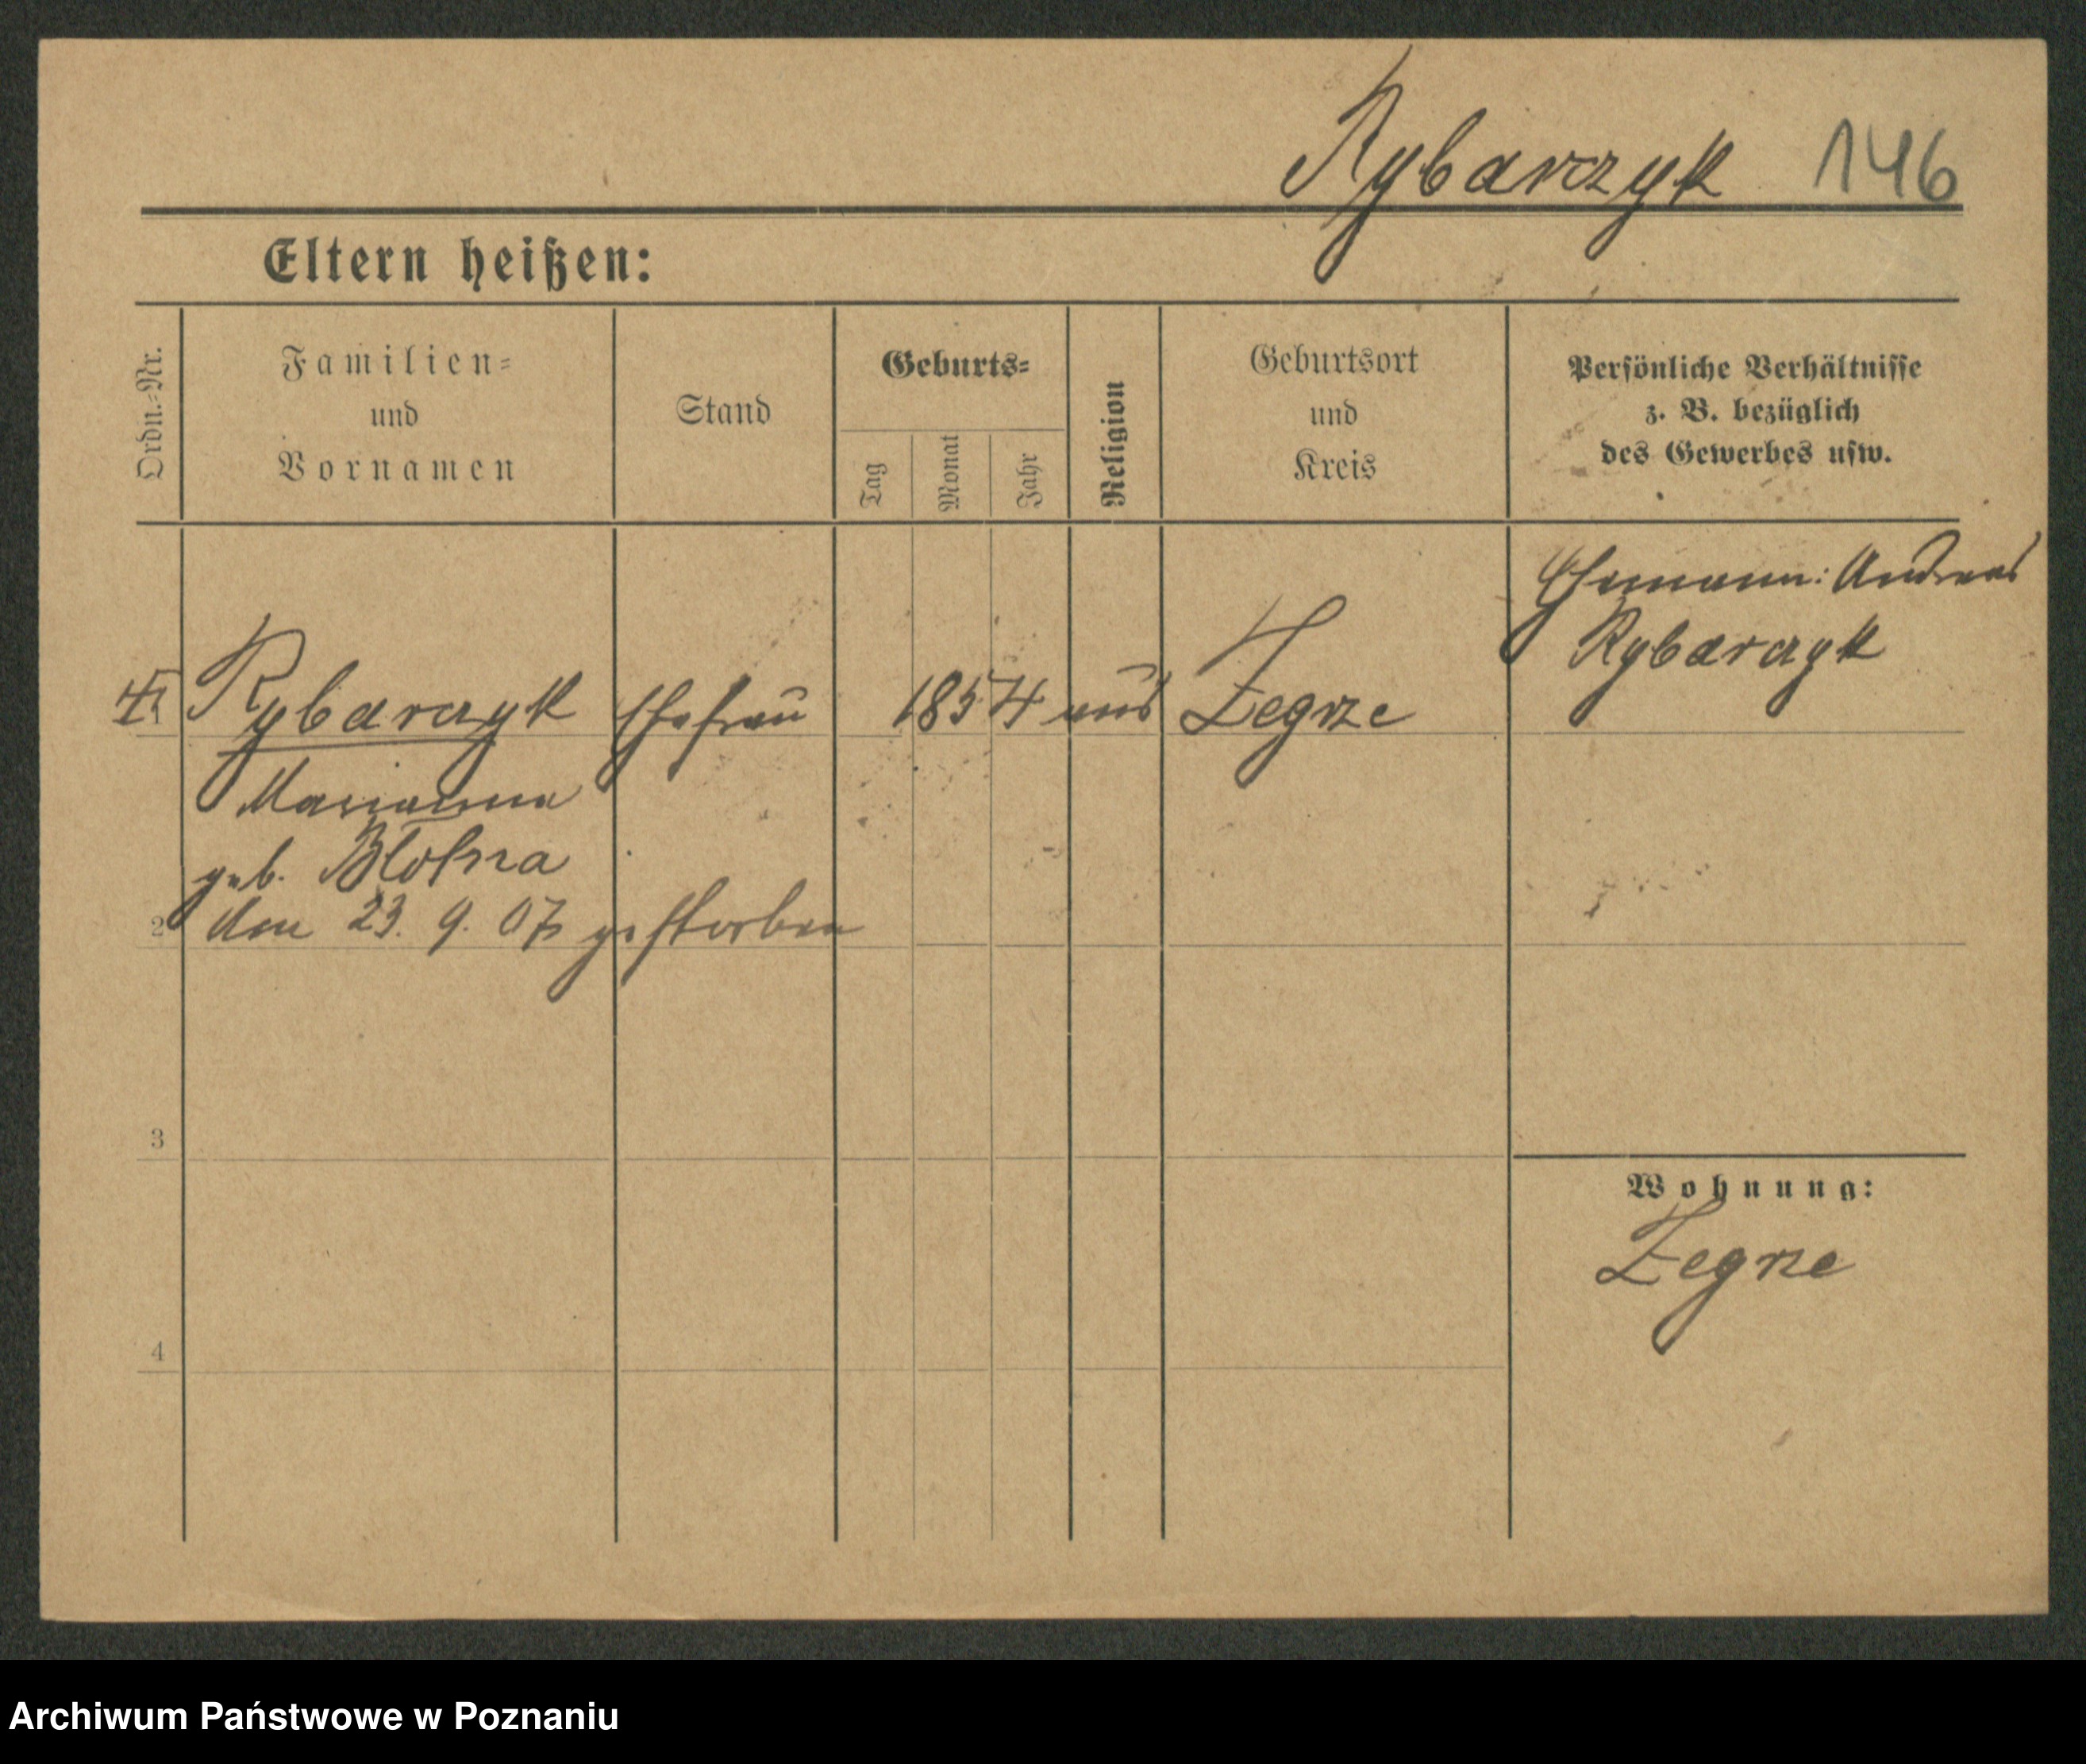 Rybarczyk 146
Eltern heißen:
Ordn.-Nr.
Familien-
und
Vornamen
Stand
Geburts-
Tag
Monat
Jahr
Religion
Geburtsort
und
Kreis
Persönliche Verhältnisse
z. B. bezüglich
des Gewerbes usw.
Ehemann: Andreas
Rybarczyk
1 Rybarczyk Ehefrau 1854 aus Zegrze
Marianna
geb.
2 den 23. 9. 07 gestorben
3
Wohnung:
Zegrze
4
Archiwum Państwowe w Poznaniu